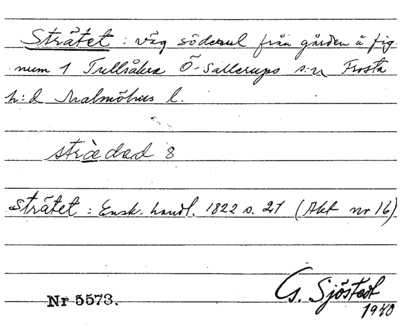 Strätet: väg söderut från gården å fig
num 1 Trulsåkra Ö-Sallerups s:n Frosta
h:d Malmöhus l.
strædəd 8
Strätet: Ensk. handl. 1822 s. 27 (Akt nr 16)
Nr 5573.
G. Sjöstedt
1940